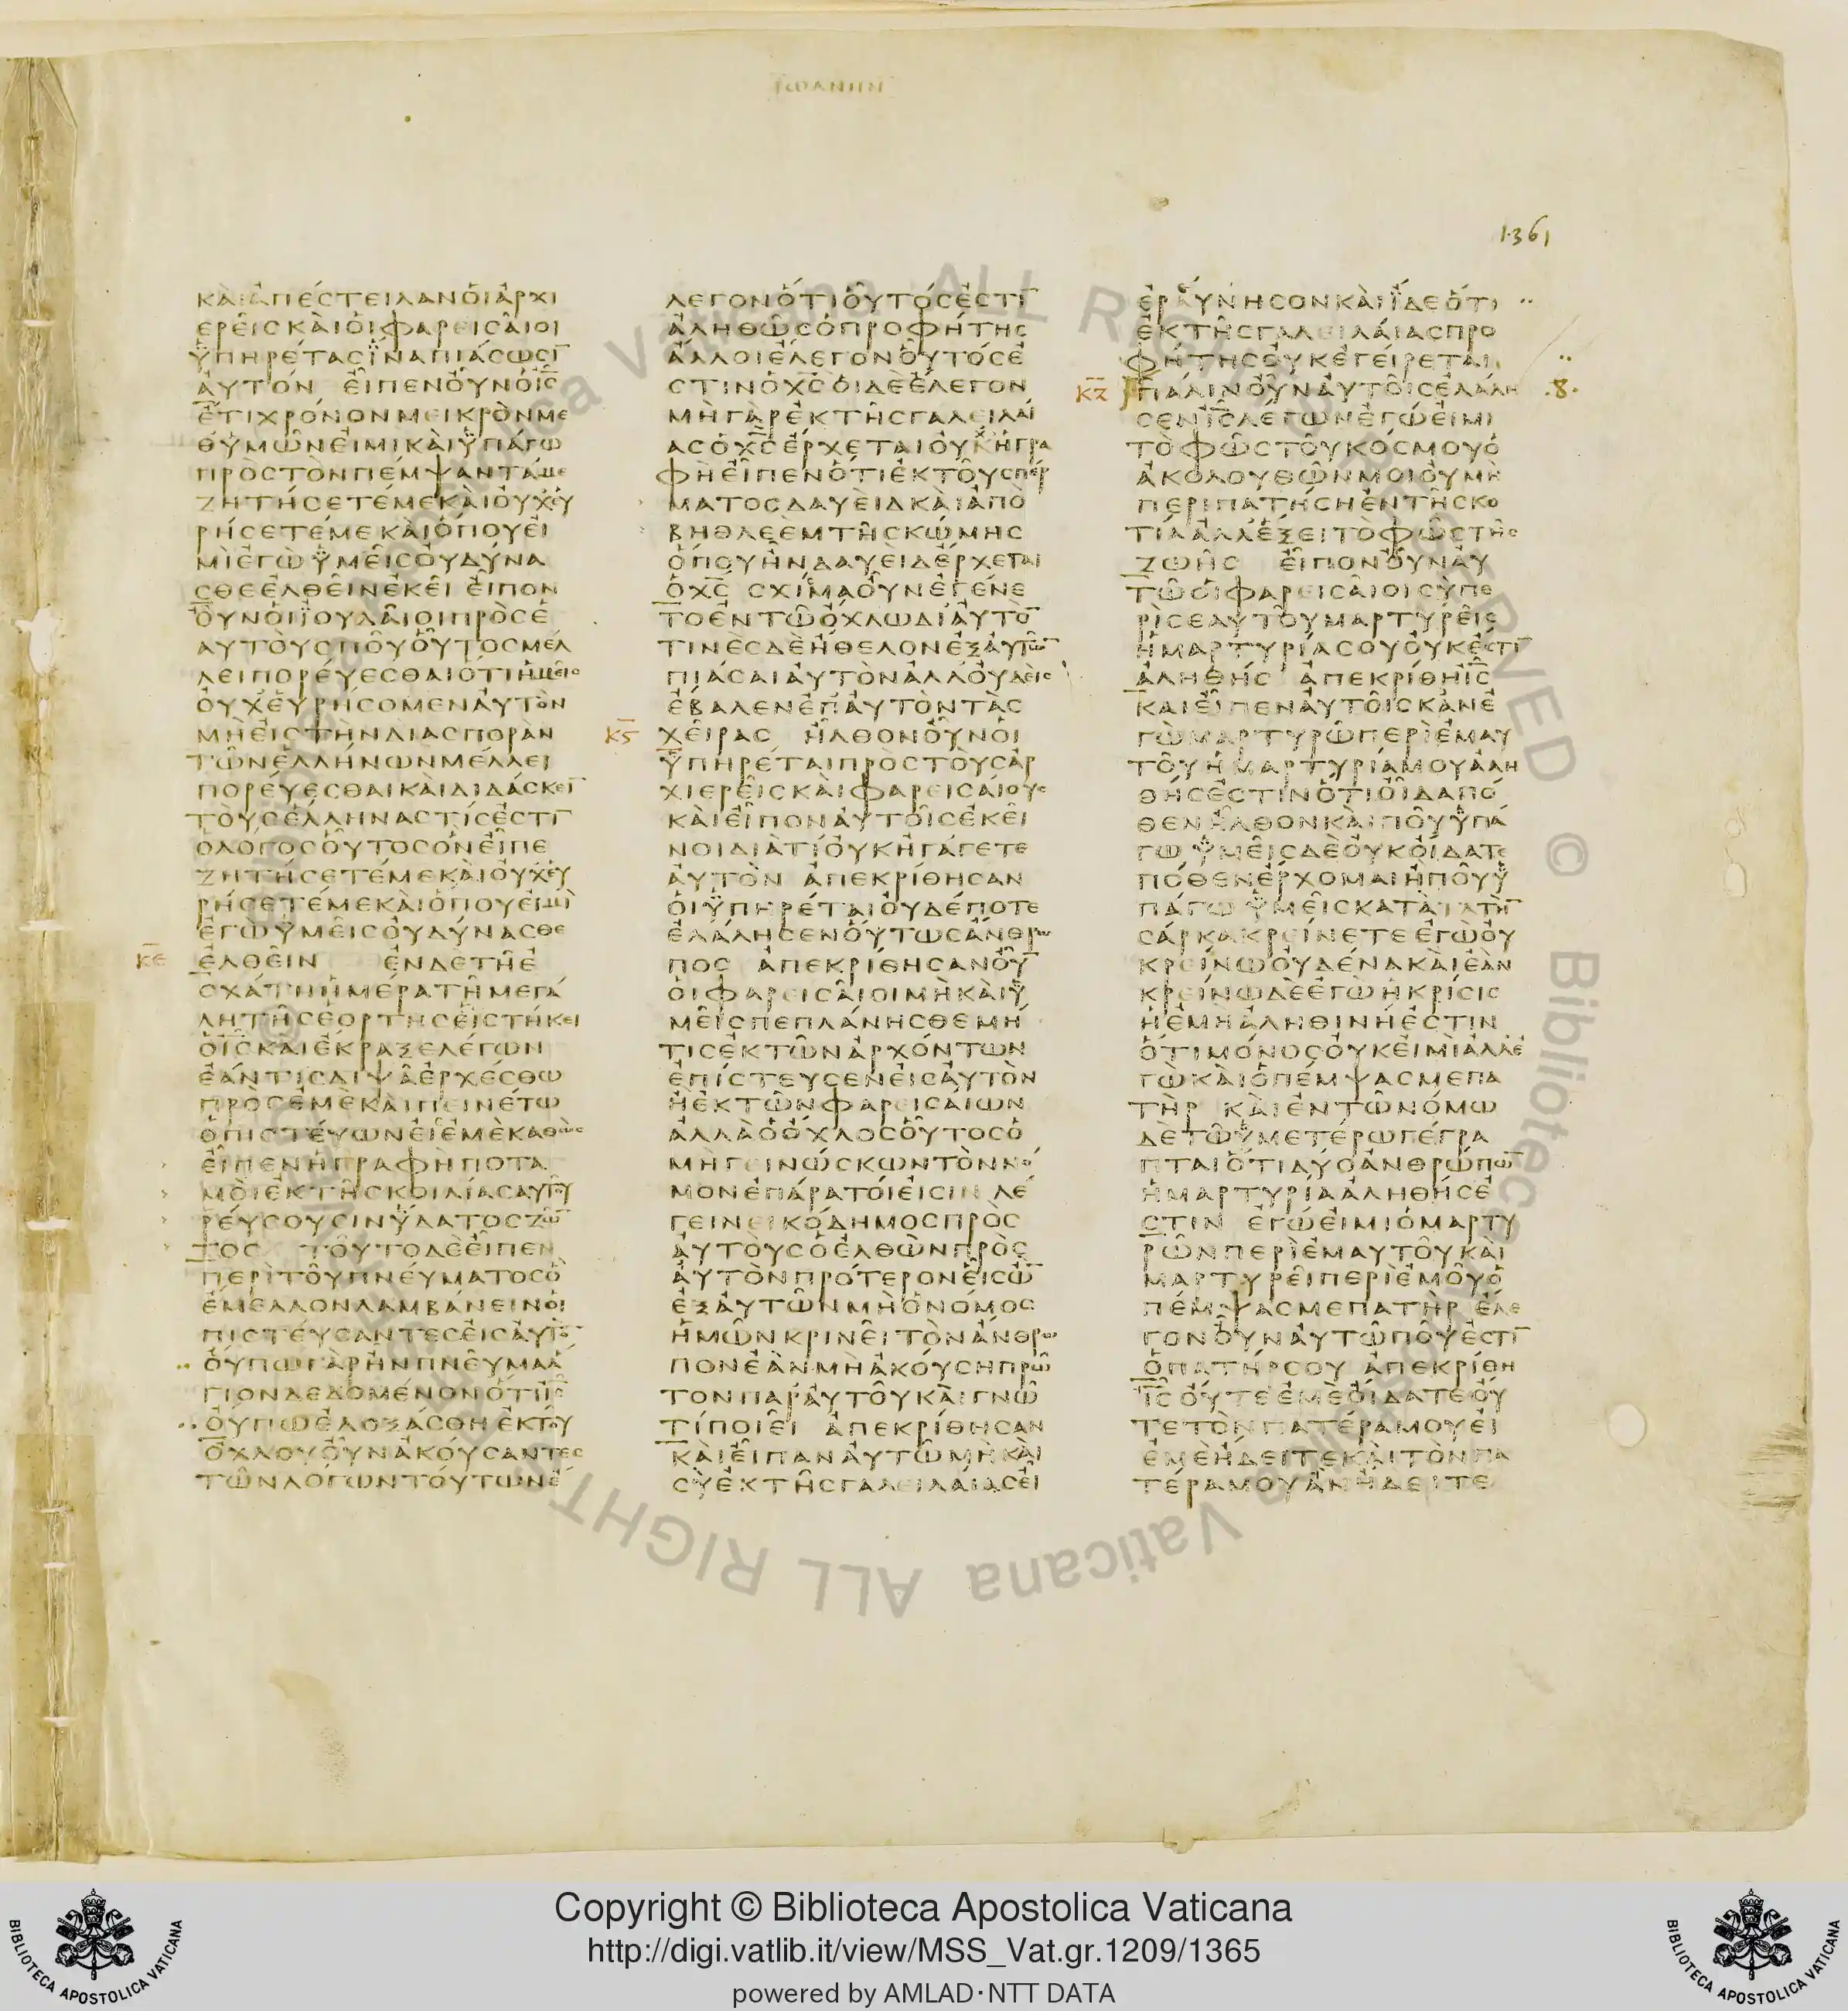 ΙΩΑΝΗΝ
1361
ΚΑΙΑΠΕϹΤΕΙΛΑΝΟΙΑΡΧΙ
ΕΡΕΙϹΚΑΙΟΙΦΑΡΕΙϹΑΙΟΙ
ΫΠΗΡΕΤΑϹΪΝΑΠΙΑϹΩϹΙ̅
ΑΥΤΟΝ ΕΙΠΕΝΟΥΝΟΙ̅Ϲ̅
ΕΤΙΧΡΟΝΟΝΜΕΙΚΡΟΝΜΕ
ΘΫΜΩΝΕΙΜΙΚΑΙΫΠΑΓΩ
ΠΡΟϹΤΟΝΠΕΜΨΑΝΤΑΜΕ
ΖΗΤΗϹΕΤΕΜΕΚΑΙΟΥΧΕΥ
ΡΗϹΕΤΕΜΕΚΑΙΟΠΟΥΕΙ
ΜΙΕΓΩΫΜΕΙϹΟΥΔΥΝΑ
ϹΘΕΕΛΘΕΙΝΕΚΕΙ ΕΙΠΟΝ
ΟΥΝΟΙΪΟΥΔΑΙΟΙΠΡΟϹΕ
ΑΥΤΟΥϹΠΟΥΟΥΤΟϹΜΕΛ
ΛΕΙΠΟΡΕΥΕϹΘΑΙΟΤΙΗΜΕΙϹ
ΟΥΧΕΥΡΗϹΟΜΕΝΑΥΤΟΝ
ΜΗΕΙϹΤΗΝΔΙΑϹΠΟΡΑΝ
ΤΩΝΕΛΛΗΝΩΝΜΕΛΛΕΙ
ΠΟΡΕΥΕϹΘΑΙΚΑΙΔΙΔΑϹΚΕΙ̅
ΤΟΥϹΕΛΛΗΝΑϹΤΙϹΕϹΤΙ̅
ΟΛΟΓΟϹΟΥΤΟϹΟΝΕΙΠΕ
ΖΗΤΗϹΕΤΕΜΕΚΑΙΟΥΧΕΥ
ΡΗϹΕΤΕΜΕΚΑΙΟΠΟΥΕΙΜΙ
ΕΓΩΫΜΕΙϹΟΥΔΥΝΑϹΘΕ
Κ̅Ε̅ ΕΛΘΕΙΝ ΕΝΔΕΤΗΕ
ϹΧΑΤΗΗΜΕΡΑΤΗΜΕΓΑ
ΛΗΤΗϹΕΟΡΤΗϹΕΙϹΤΗΚΕΙ
ΟΙ̅Ϲ̅ΚΑΙΕΚΡΑΞΕΛΕΓΩΝ
ΕΑΝΤΙϹΔΙΨΑΕΡΧΕϹΘΩ
ΠΡΟϹΕΜΕΚΑΙΠΕΙΝΕΤΩ
ΟΠΙϹΤΕΥΩΝΕΙϹΕΜΕΚΑΘΩϹ
ΕΙΠΕΝΗΓΡΑΦΗΠΟΤΑ
ΜΟΙΕΚΤΗϹΚΟΙΛΙΑϹΑΥΤΟΥ
ΡΕΥϹΟΥϹΙΝΫΔΑΤΟϹΖΩ̅
ΤΟϹ ΤΟΥΤΟΔΕΕΙΠΕΝ
ΠΕΡΙΤΟΥΠΝΕΥΜΑΤΟϹΟ
ΕΜΕΛΛΟΝΛΑΜΒΑΝΕΙΝΟΙ
ΠΙϹΤΕΥϹΑΝΤΕϹΕΙϹΑΥΤΟ̅
ΟΥΠΩΓΑΡΗΝΠΝΕΥΜΑΑ
ΓΙΟΝΔΕΔΟΜΕΝΟΝΟΤΙΙ̅Ϲ̅
ΟΥΠΩΕΔΟΞΑϹΘΗΕΚΤΟΥ
ΟΧΛΟΥΟΥΝΑΚΟΥϹΑΝΤΕϹ
ΤΩΝΛΟΓΩΝΤΟΥΤΩΝΕ
ΛΕΓΟΝΟΤΙΟΥΤΟϹΕϹΤΙ̅
ΑΛΗΘΩϹΟΠΡΟΦΗΤΗϹ
ΑΛΛΟΙΕΛΕΓΟΝΟΥΤΟϹΕ
ϹΤΙΝΟΧ̅Ϲ̅ΟΙΔΕΕΛΕΓΟΝ
ΜΗΓΑΡΕΚΤΗϹΓΑΛΕΙΛΑΙ
ΑϹΟΧ̅Ϲ̅ΕΡΧΕΤΑΙΟΥΧΗΓΡΑ
ΦΗΕΙΠΕΝΟΤΙΕΚΤΟΥϹΠΕΡ
ΜΑΤΟϹΔΑΥΕΙΔΚΑΙΑΠΟ
ΒΗΘΛΕΕΜΤΗϹΚΩΜΗϹ
ΟΠΟΥΗΝΔΑΥΕΙΔΕΡΧΕΤΑΙ
ΟΧ̅Ϲ̅ ϹΧΙϹΜΑΟΥΝΕΓΕΝΕ
ΤΟΕΝΤΩΟΧΛΩΔΙΑΥΤΟ̅
ΤΙΝΕϹΔΕΗΘΕΛΟΝΕΞΑΥΤΩ̅
ΠΙΑϹΑΙΑΥΤΟΝΑΛΛΟΥΔΕΙϹ
ΕΒΑΛΕΝΕΠΑΥΤΟΝΤΑϹ
Κ̅Ϛ̅ ΧΕΙΡΑϹ ΗΛΘΟΝΟΥΝΟΙ
ΫΠΗΡΕΤΑΙΠΡΟϹΤΟΥϹΑΡ
ΧΙΕΡΕΙϹΚΑΙΦΑΡΕΙϹΑΙΟΥϹ
ΚΑΙΕΙΠΟΝΑΥΤΟΙϹΕΚΕΙ
ΝΟΙΔΙΑΤΙΟΥΚΗΓΑΓΕΤΕ
ΑΥΤΟΝ ΑΠΕΚΡΙΘΗϹΑΝ
ΟΙΫΠΗΡΕΤΑΙΟΥΔΕΠΟΤΕ
ΕΛΑΛΗϹΕΝΟΥΤΩϹΑΝΘΡΩ
ΠΟϹ ΑΠΕΚΡΙΘΗϹΑΝΟΥ̅
ΟΙΦΑΡΕΙϹΑΙΟΙΜΗΚΑΙΫ
ΜΕΙϹΠΕΠΛΑΝΗϹΘΕΜΗ
ΤΙϹΕΚΤΩΝΑΡΧΟΝΤΩΝ
ΕΠΙϹΤΕΥϹΕΝΕΙϹΑΥΤΟΝ
ΗΕΚΤΩΝΦΑΡΕΙϹΑΙΩΝ
ΑΛΛΑΟΟΧΛΟϹΟΥΤΟϹΟ
ΜΗΓΕΙΝΩϹΚΩΝΤΟΝΝΟ
ΜΟΝΕΠΑΡΑΤΟΙΕΙϹΙΝ ΛΕ
ΓΕΙΝΕΙΚΟΔΗΜΟϹΠΡΟϹ
ΑΥΤΟΥϹΟΕΛΘΩΝΠΡΟϹ
ΑΥΤΟΝΠΡΟΤΕΡΟΝΕΙϹΩ̅
ΕΞΑΥΤΩΝΜΗΟΝΟΜΟϹ
ΗΜΩΝΚΡΙΝΕΙΤΟΝΑΝΘΡΩ
ΠΟΝΕΑΝΜΗΑΚΟΥϹΗΠΡΩ̅
ΤΟΝΠΑΡΑΥΤΟΥΚΑΙΓΝΩ
ΤΙΠΟΙΕΙ ΑΠΕΚΡΙΘΗϹΑΝ
ΚΑΙΕΙΠΑΝΑΥΤΩΜΗΚΑΙ
ϹΥΕΚΤΗϹΓΑΛΕΙΛΑΙΑϹΕΙ
ΕΡΑΥΝΗϹΟΝΚΑΙΪΔΕΟΤΙ
ΕΚΤΗϹΓΑΛΕΙΛΑΙΑϹΠΡΟ
ΦΗΤΗϹΟΥΚΕΓΕΙΡΕΤΑΙ
Κ̅Ζ̅ ΠΑΛΙΝΟΥΝΑΥΤΟΙϹΕΛΑΛΗ .8.
ϹΕΝΙ̅Ϲ̅ΛΕΓΩΝΕΓΩΕΙΜΙ
ΤΟΦΩϹΤΟΥΚΟϹΜΟΥΟ
ΑΚΟΛΟΥΘΩΝΜΟΙΟΥΜΗ
ΠΕΡΙΠΑΤΗϹΗΕΝΤΗϹΚΟ
ΤΙΑΑΛΛΕΞΕΙΤΟΦΩϹΤΗϹ
ΖΩΗϹ ΕΙΠΟΝΟΥΝΑΥ
ΤΩΟΙΦΑΡΕΙϹΑΙΟΙϹΥΠΕ
ΡΙϹΕΑΥΤΟΥΜΑΡΤΥΡΕΙϹ
ΗΜΑΡΤΥΡΙΑϹΟΥΟΥΚΕϹΤΙ̅
ΑΛΗΘΗϹ ΑΠΕΚΡΙΘΗΙ̅Ϲ̅
ΚΑΙΕΙΠΕΝΑΥΤΟΙϹΚΑΝΕ
ΓΩΜΑΡΤΥΡΩΠΕΡΙΕΜΑΥ
ΤΟΥΗΜΑΡΤΥΡΙΑΜΟΥΑΛΗ
ΘΗϹΕϹΤΙΝΟΤΙΟΙΔΑΠΟ
ΘΕΝΗΛΘΟΝΚΑΙΠΟΥΫΠΑ
ΓΩ ΫΜΕΙϹΔΕΟΥΚΟΙΔΑΤΕ
ΠΟΘΕΝΕΡΧΟΜΑΙΗΠΟΥΫ
ΠΑΓΩ ΫΜΕΙϹΚΑΤΑΤΗ̅
ϹΑΡΚΑΚΡΕΙΝΕΤΕΕΓΩΟΥ
ΚΡΕΙΝΩΟΥΔΕΝΑΚΑΙΕΑΝ
ΚΡΕΙΝΩΔΕΕΓΩΗΚΡΙϹΙϹ
ΗΕΜΗΑΛΗΘΙΝΗΕϹΤΙΝ
ΟΤΙΜΟΝΟϹΟΥΚΕΙΜΙΑΛΛΕ
ΓΩΚΑΙΟΠΕΜΨΑϹΜΕΠΑ
ΤΗΡ ΚΑΙΕΝΤΩΝΟΜΩ
ΔΕΤΩΫΜΕΤΕΡΩΓΕΓΡΑ
ΠΤΑΙΟΤΙΔΥΟΑΝΘΡΩΠΩ̅
ΗΜΑΡΤΥΡΙΑΑΛΗΘΗϹΕ
ϹΤΙΝ ΕΓΩΕΙΜΙΟΜΑΡΤΥ
ΡΩΝΠΕΡΙΕΜΑΥΤΟΥΚΑΙ
ΜΑΡΤΥΡΕΙΠΕΡΙΕΜΟΥΟ
ΠΕΜΨΑϹΜΕΠΑΤΗΡ ΕΛΕ
ΓΟΝΟΥΝΑΥΤΩΠΟΥΕϹΤΙ̅
ΟΠΑΤΗΡϹΟΥ ΑΠΕΚΡΙΘΗ
Ι̅Ϲ̅ΟΥΤΕΕΜΕΟΙΔΑΤΕΟΥ
ΤΕΤΟΝΠΑΤΕΡΑΜΟΥΕΙ
ΕΜΕΗΔΕΙΤΕΚΑΙΤΟΝΠΑ
ΤΕΡΑΜΟΥΑΝΗΔΕΙΤΕ
Copyright © Biblioteca Apostolica Vaticana
http://digi.vatlib.it/view/MSS_Vat.gr.1209/1365
powered by AMLAD·NTT DATA
BIBLIOTECA APOSTOLICA VATICANA
BIBLIOTECA APOSTOLICA VATICANA